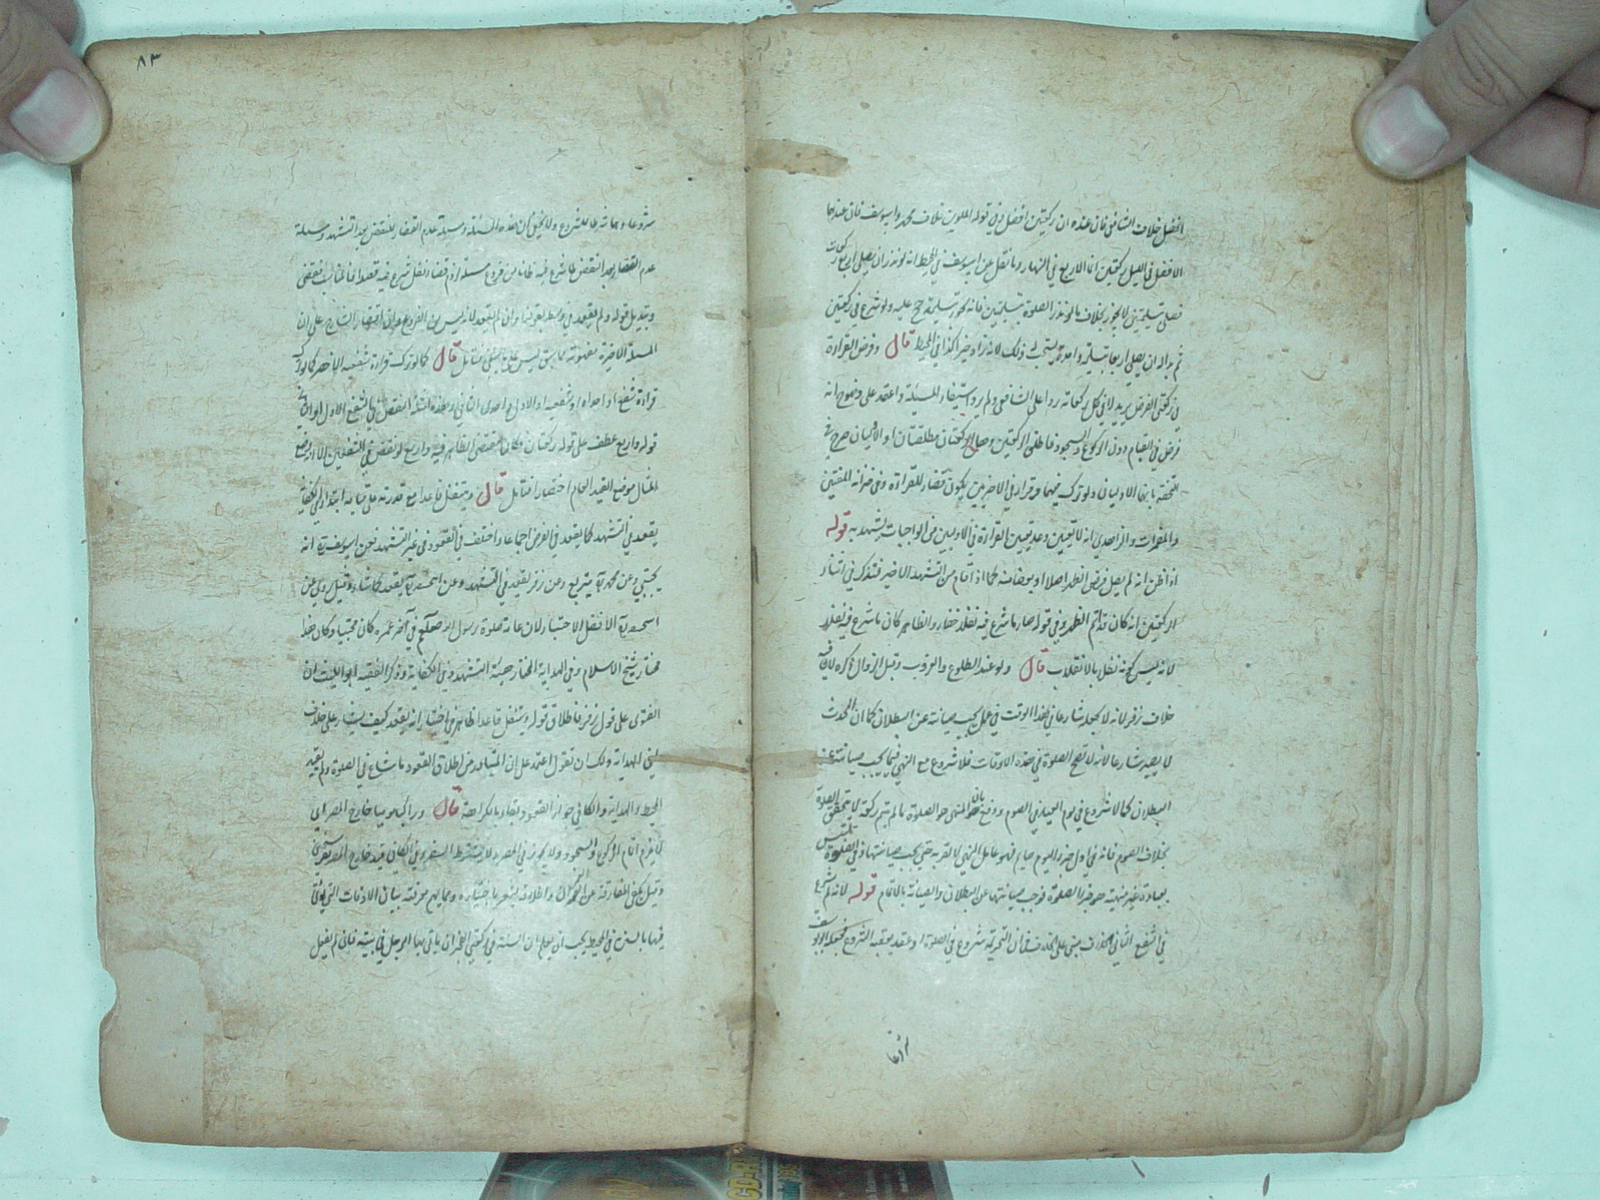 افضل خلاف الشافعي فان عنده ان ركعتين افضل وفي قوله الملوين خلاف محمد وابي يوسف فان عندهما
الافضل في الليل ركعتين اما الاربع في النهار وما نقل عن ابي يوسف في المحيط انه لو نذر ان يصلي اربع ركعات
فصلى بتسليمتين لا يجوز بخلاف ما لو نذر الصلوة بتسليمتين فانه يجوز بتسليمة عليه ولو شرع في ركعتين
ثم بدا له ان يصلي اربعا بتسليمة واحدة يستحب له ذلك لانه زاد خيرا كذا في المحيط قال وفرض القراءة
في ركعتي الفرض يريد لا في كل ركعاته ردا على الشافعي ولم يرد استيفاء المسئلة واعتمد على وضوح انه
فرض في القيام دون الركوع والسجود فاطلق الركعتين وهما الركعتان مطلقتان او الاوليان صرح في
التحفة بانها الاوليان ولو ترك فيهما وقرأ في الاخريين يكون قضاء للقراءة وفي خزانة المفتين
والمضمرات والزاهدي انه لا تتعين وعد تعيين القراءة في الاوليين من الواجبات يشهد به قوله
اذا ظن انه لم يصل فرض الظهر اصلا او بعضا منه كما اذا قام من التشهد الاخير فتذكر في اثناء
الركعتين انه كان قد اتم الظهر وفي قوله صار ما شرع فيه نفلا خفاء والظاهر كان ما شرع فيه نفلا
لانه ليس كونه نفلا بالانقلاب قال ولو عند الطلوع والغروب وقبل الزوال ذكره لان فيه
خلاف زفر لانه لا يجعله شارعا في هذا الوقت في عمل يجب صيانته عن البطلان كما ان المحدث
لا يصير شارعا لانه لا تصح الصلوة في هذه الاوقات فلا شروع مع النهي فيما يجب صيانته عن
البطلان كما لا شروع في يوم العيد في الصوم ودفع بان المنهي هو الصلوة ما لم يتم ركعة لا يتحقق الصلوة
بخلاف الصوم فانه في اول جزء اليوم صايم فهو عامل النهي لا لقربة حتى يجب صيانتها وفي الصلوة تلبس
بعبادة غير منهية هو جزء الصلوة فوجب صيانتها عن البطلان والصيانة بالاتمام قوله لانه لم يشرع
في الشفع الثاني الخلاف مبني على الخلاف في ان التحريمة شروع في الصلوة او عقد يعقبه الشروع فجعله ابو يوسف
شروعا
٨٣
شروعا وهما شرطا للشروع ولا يخفى ان هذه المسئلة ومسئلة عدم القضاء للنقض بعد التشهد ومسئلة
عدم القضاء بعد النقض لما شرع فيه ظانا من فروع مسئلة لزم قضاء نفل شرع فيه قصدا فالمناسب فنقضي
وتبديل قوله ولم يقعد في وسطه بقولنا وان لم يقعد لانه ليس من الفروع وان اقتصار الشارح على ان
المسئلة الاخيرة مفهومة مما سبق ليس على ما ينبغي فتامل قال كما لو ترك قراءة شفعيه الاخصر كما لو ترك
قراءة شفع او احداه او شفعيه او الاول واحدى الثاني وهذه امثلة النقض في الشفع الاول او الثاني
قوله واربع عطف على قوله ركعتان وكان مقتضى الظاهر فيه واربع لو نقض في الشفعين الا انه وضع
المثال موضع القيد العام اختصارا فتامل قال ويتنفل قاعدا مع قدرته على قيامه ابتداء في كيفية
يقعد في التشهد كما يقعد في الفرض اجماعا واختلف في القعود في غير التشهد فعن ابي يوسف رح انه
يحتبي وعن محمد رح يتربع وعن زفر يقعد في التشهد وعن ابي حنيفة رح يقعد كما شاء وقيل روي عن
ابي حنيفة رح الافضل الاحتباء لان عامة صلوة رسول الله صلعم في آخر عمره كان محتبيا وكان هذا
مختار شيخ الاسلام وفي الهداية المختار هيئة التشهد وفي الكفاية وذكر الفقيه ابو الليث ان
الفتوى على قول زفر فاطلاق قوله ويتنفل قاعدا ظاهر في اختيار انه يقعد كيف يشاء على خلاف
ما في الهداية ولك ان تقول اعتمد على ان المتبادر من اطلاق القعود ما شاع في الصلوة ولم يقيد
المحيط والهداية والكافي جواز القعود بقاء بالكراهة قال وراكبا موميا خارج المصر اي
لا يلزم اتمام الركوع والسجود ولا يجوز في المصر ولا يشترط السفر وفي الكافي قيد خارج المصر يقتضي
وقيل يكفي المفارقة عن العمران والاطلاق يشعر باختياره ومما يهم معرفته بيان الاوقات التي يؤتى
فيها بالسنن في المحيط يجب ان يعلم بان السنة في ركعتي الفجر ان ياتي بها الرجل في بيته فان لم يفعل